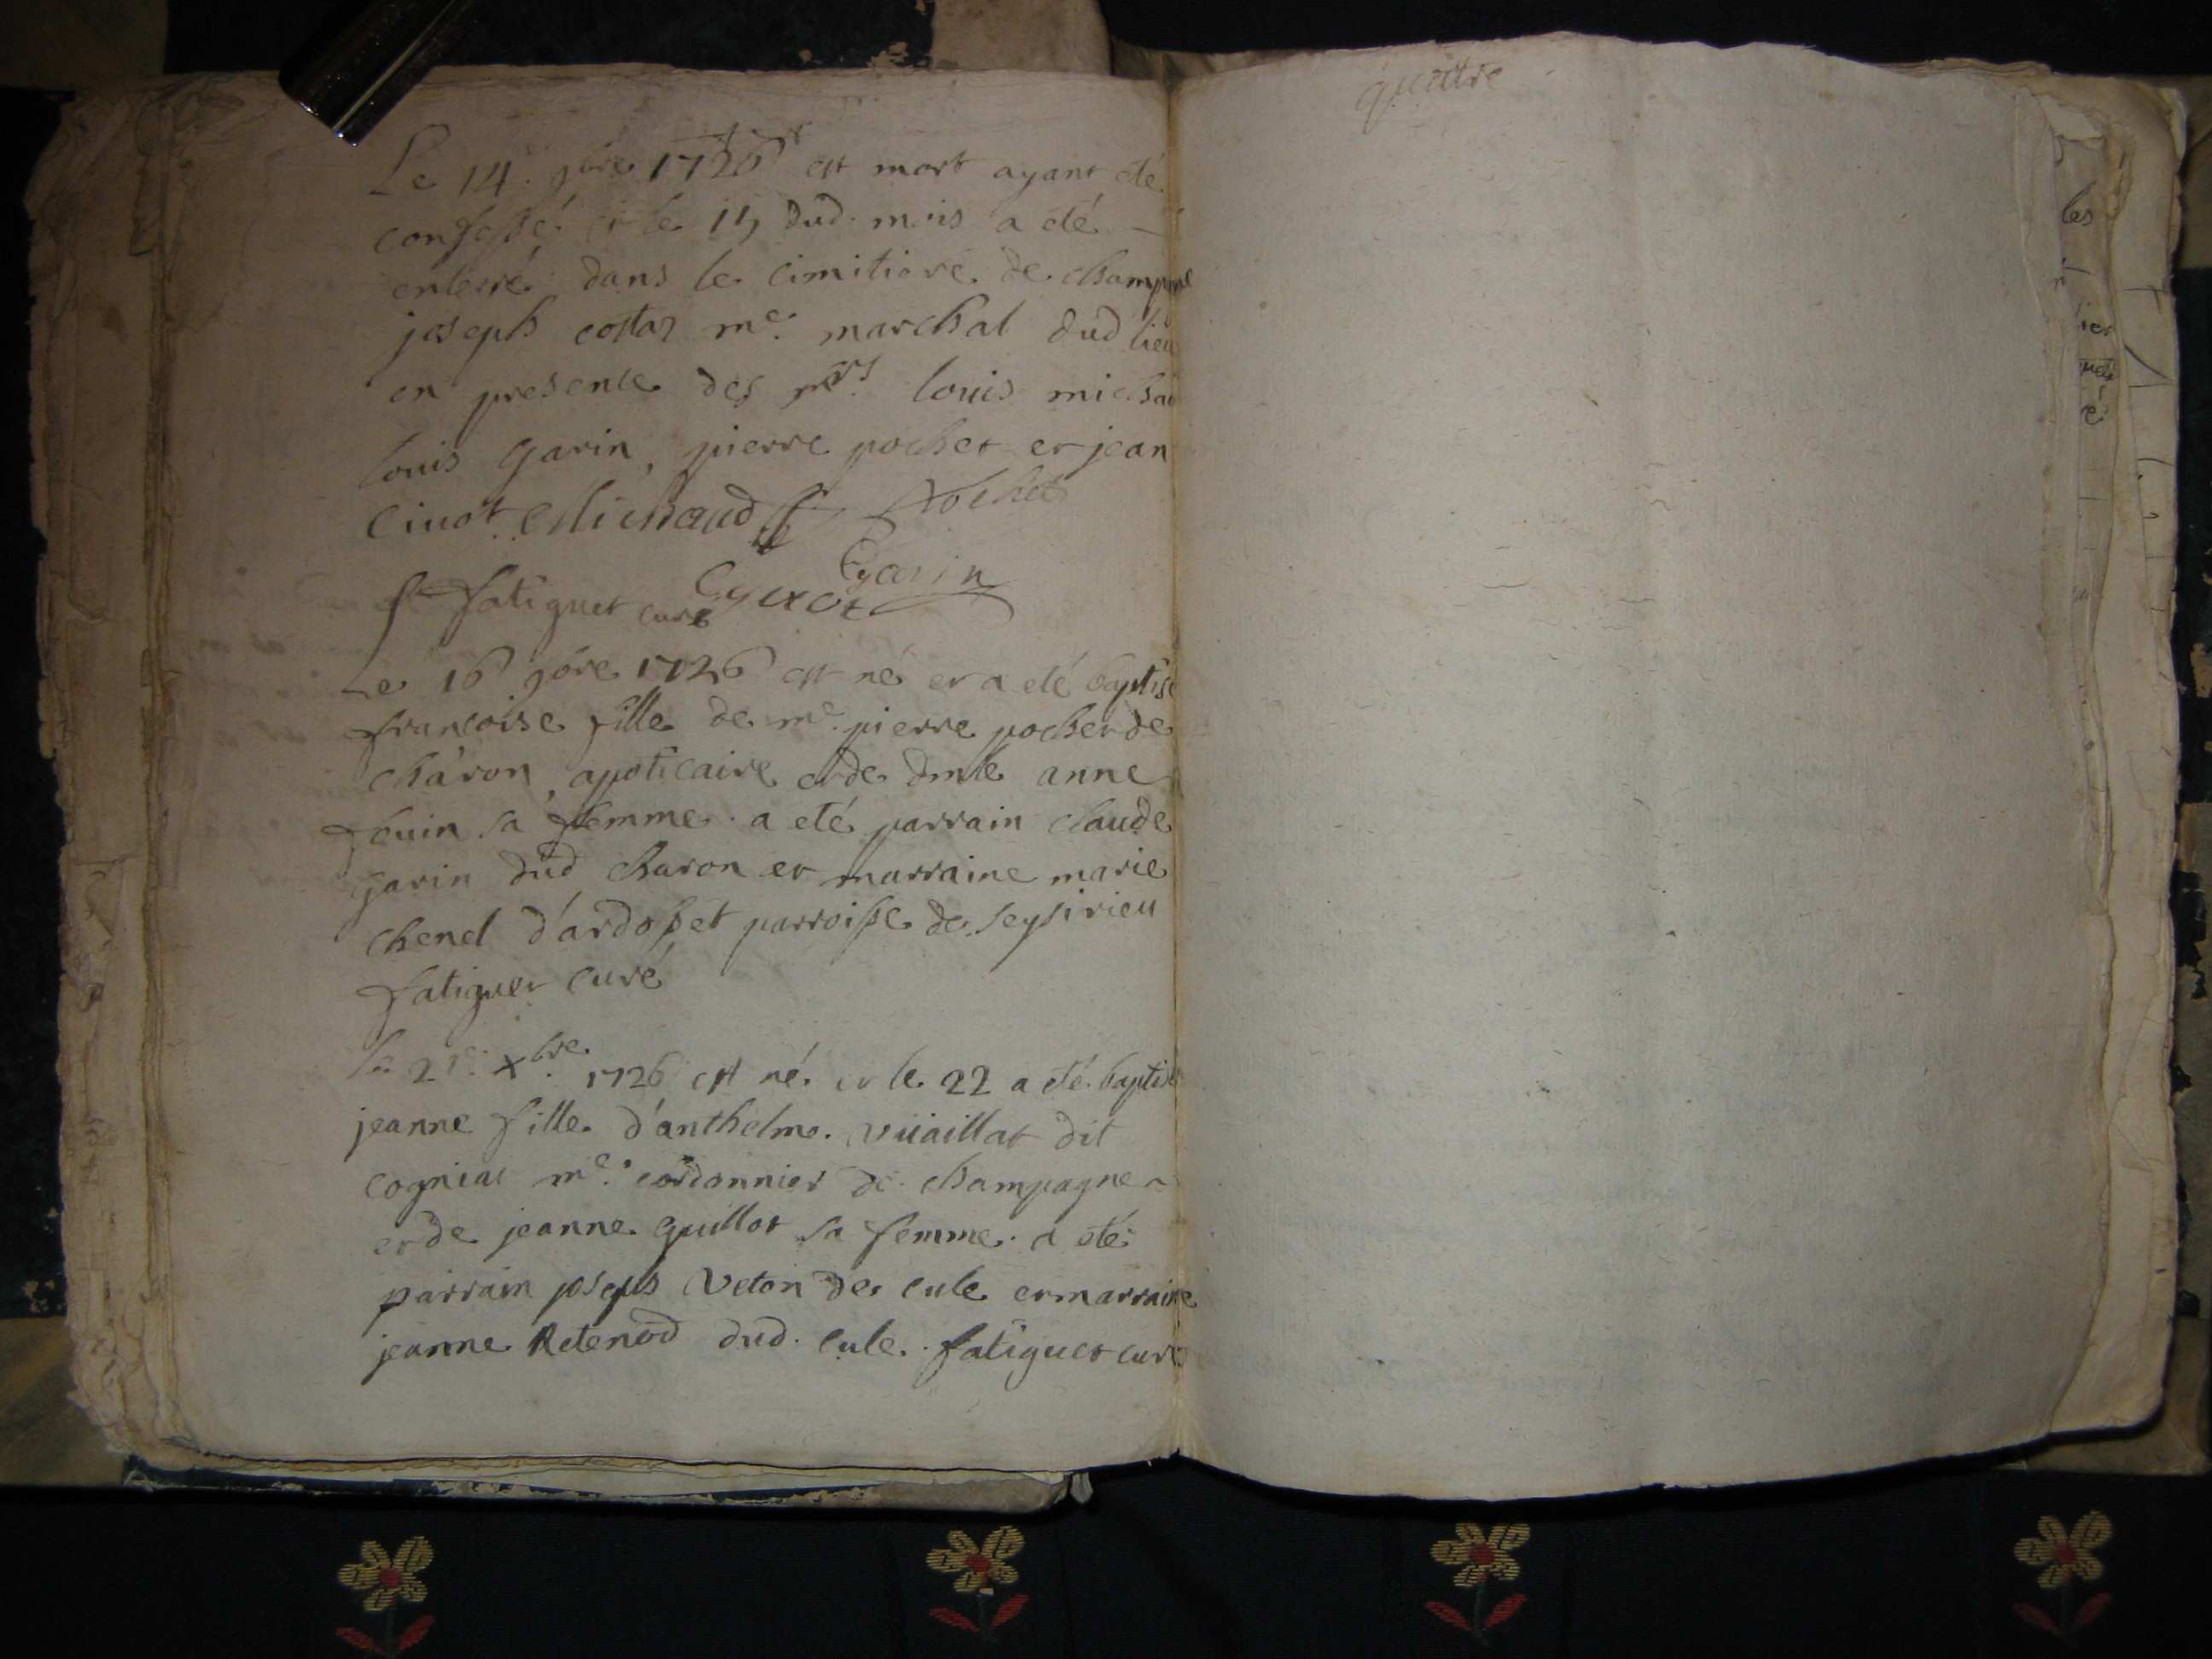 Le 14. 9bre 1726 est mort ayant eté
confessé et le 15 dud. mois a eté
enterré dans le cimitiere de champagne
joseph costaz me. marchal dud lieu
en presence des mrs. louis michau
louis garin, pierre pochet et jean
Cinot Michaud Pochet
Garin
fatiguet curé Cyuot
Le 16 9bre 1726 est né et a eté baptisé
francoise fille de me. pierre pochet de
cháron, apoticaire et de dmle anne
jouin sa femme. a eté parrain claude
garin dud charon et marraine marie
chenel d'ardosset parroisse de seysirieu
fatiguet curé
le 21e. Xbre. 1726 est né. et le 22 a eté baptisé
jeanne fille d'anthelme. vüaillat dit
cogniat me. cordonnier de champagne
et de jeanne guillot sa femme. a eté
parrain joseph Veton de cule et marraine
jeanne Retenod dud. cule. fatiguet curé
quattre
les
ier